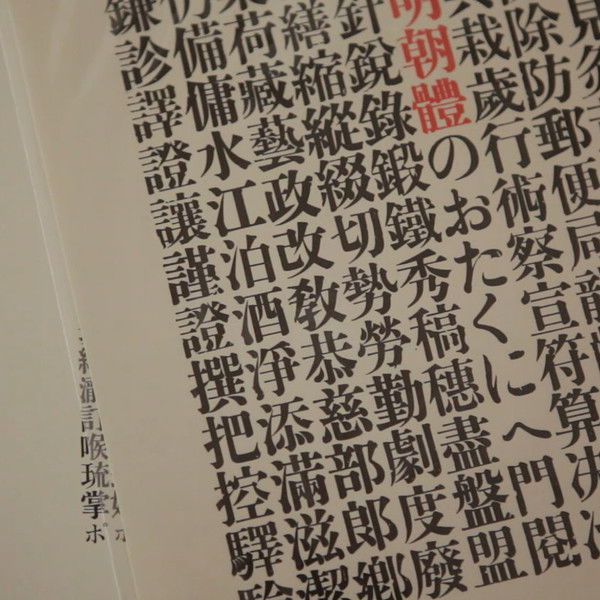 見
除防郵便局龍
栽歲行術察宣符算決
明朝體のおたくにへ門閱
針銳錄鍛鐵秀稿穗盡盤盟
繕縮縱綴切勢勞勤劇度廢
荷藏藝政改敎恭慈部郎鄉
備傭水江泊酒淨添滿滋潔
鎌診譯證讓謹證撰把控驛
訂喉琉掌ポ